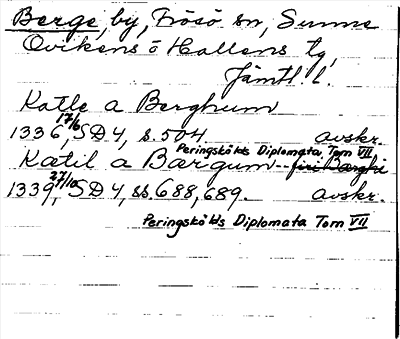 Berge, by, Frösö sn, Sunne
Ovikens o Hallens tg,
Jämtl. l.
Katle a Berghum
1336 17/6, SD 4, s. 504. avskr.
Peringskölds Diplomata Tom VII
Kætil a Bærgum --
1339 27/10, SD 4, ss. 688, 689. avskr.
Peringskölds Diplomata Tom VII